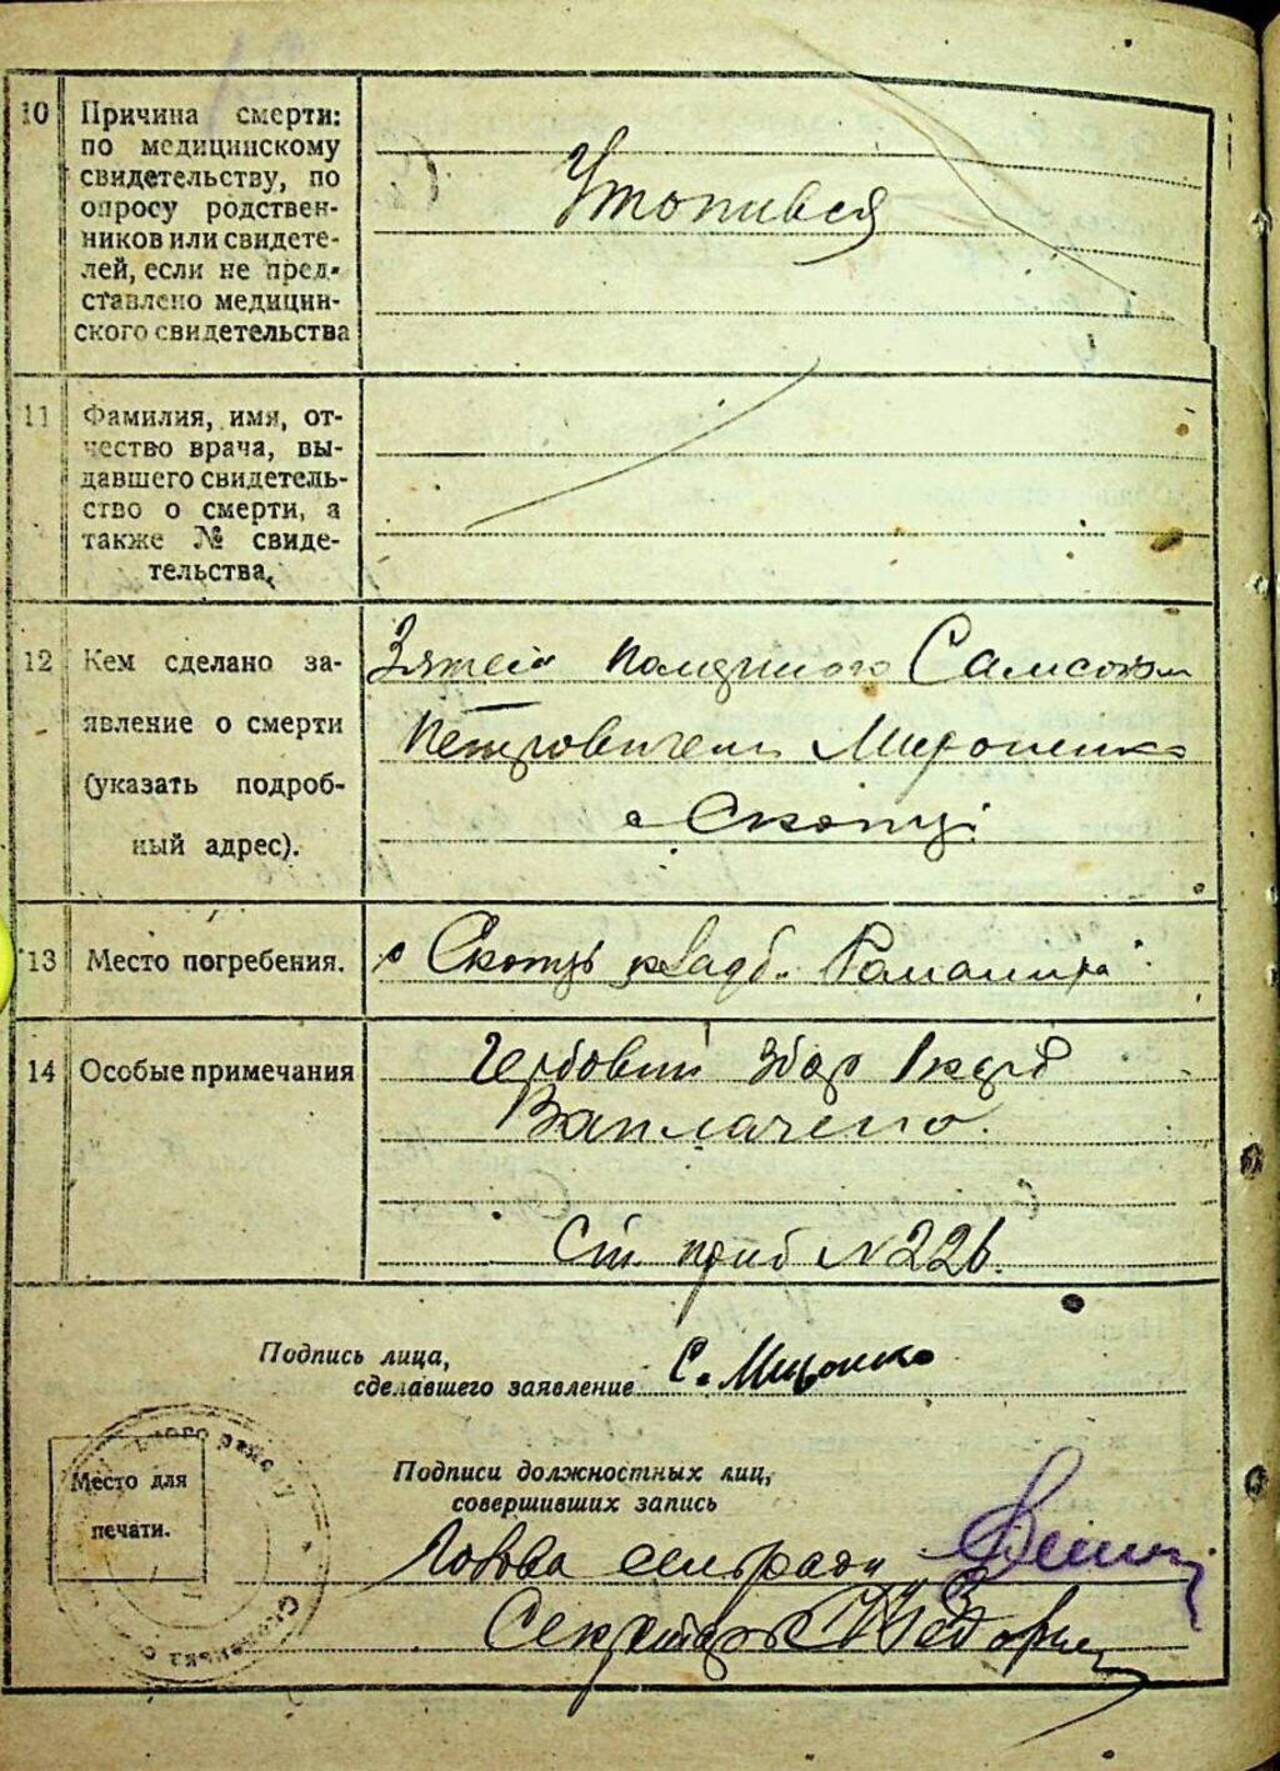 10 Причина смерти:
по медицинскому
свидетельству, по
опросу родствен-
ников или свидете-
лей, если не пред-
ставлено медицин-
ского свидетельства
Утопився
11 Фамилия, имя, от-
чество врача, вы-
давшего свидетель-
ство о смерти, а
также № свиде-
тельства.
12 Кем сделано за-
явление о смерти
(указать подроб-
ный адрес).
Зятем Самсоном
Петровичем Мироненко
13 Место погребения.
14 Особые примечания
Гербовий збор
Заплачено.
№ 226.
Подпись лица,
сделавшего заявление С. Мироненко
Место для
печати.
Подписи должностных лиц,
совершивших запись
Голова сельради
Секретарь